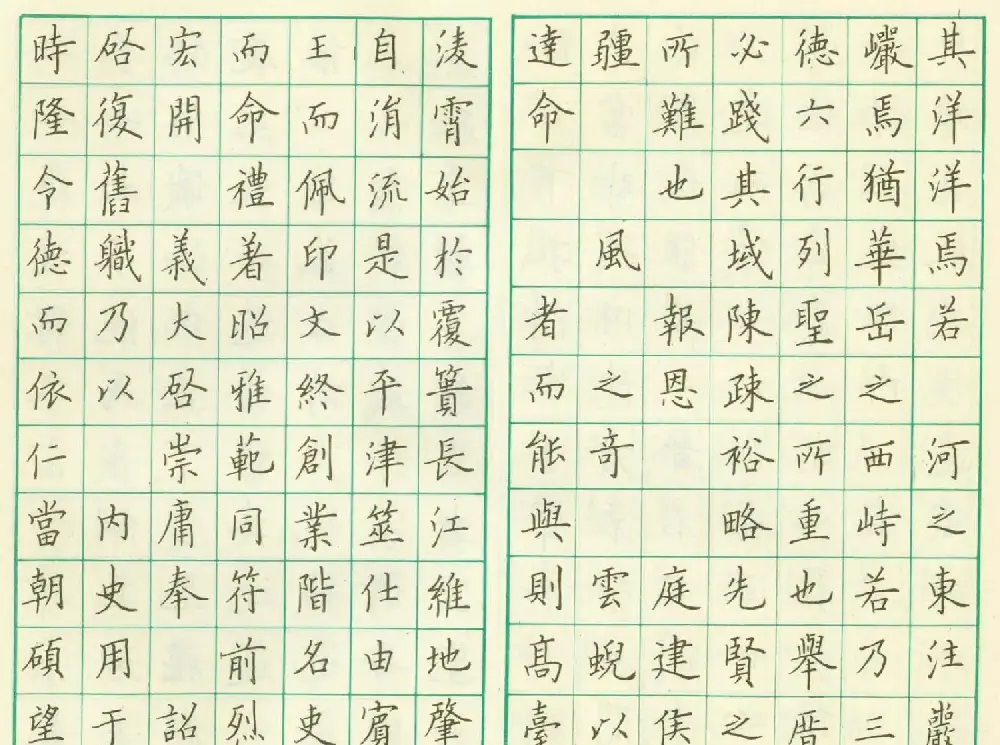 其洋洋焉若 河之東注巖
巗焉猶華岳之西峙若乃三
德六行列聖之所重也舉厝
必踐其域陳疎裕略先賢之
所難也 報恩 庭建侯
疆 風 之奇 雲蜺以
達命 者而能與則髙臺
淩霄始於覆簣長江維地肇
自涓流是以平津筮仕由賓
王而佩印文終創業階名吏
而命禮著昭雅範同符前烈
宏開 義大啓崇庸奉 詔
啓復舊職乃以 內史用于
時隆令德而依仁當朝碩望